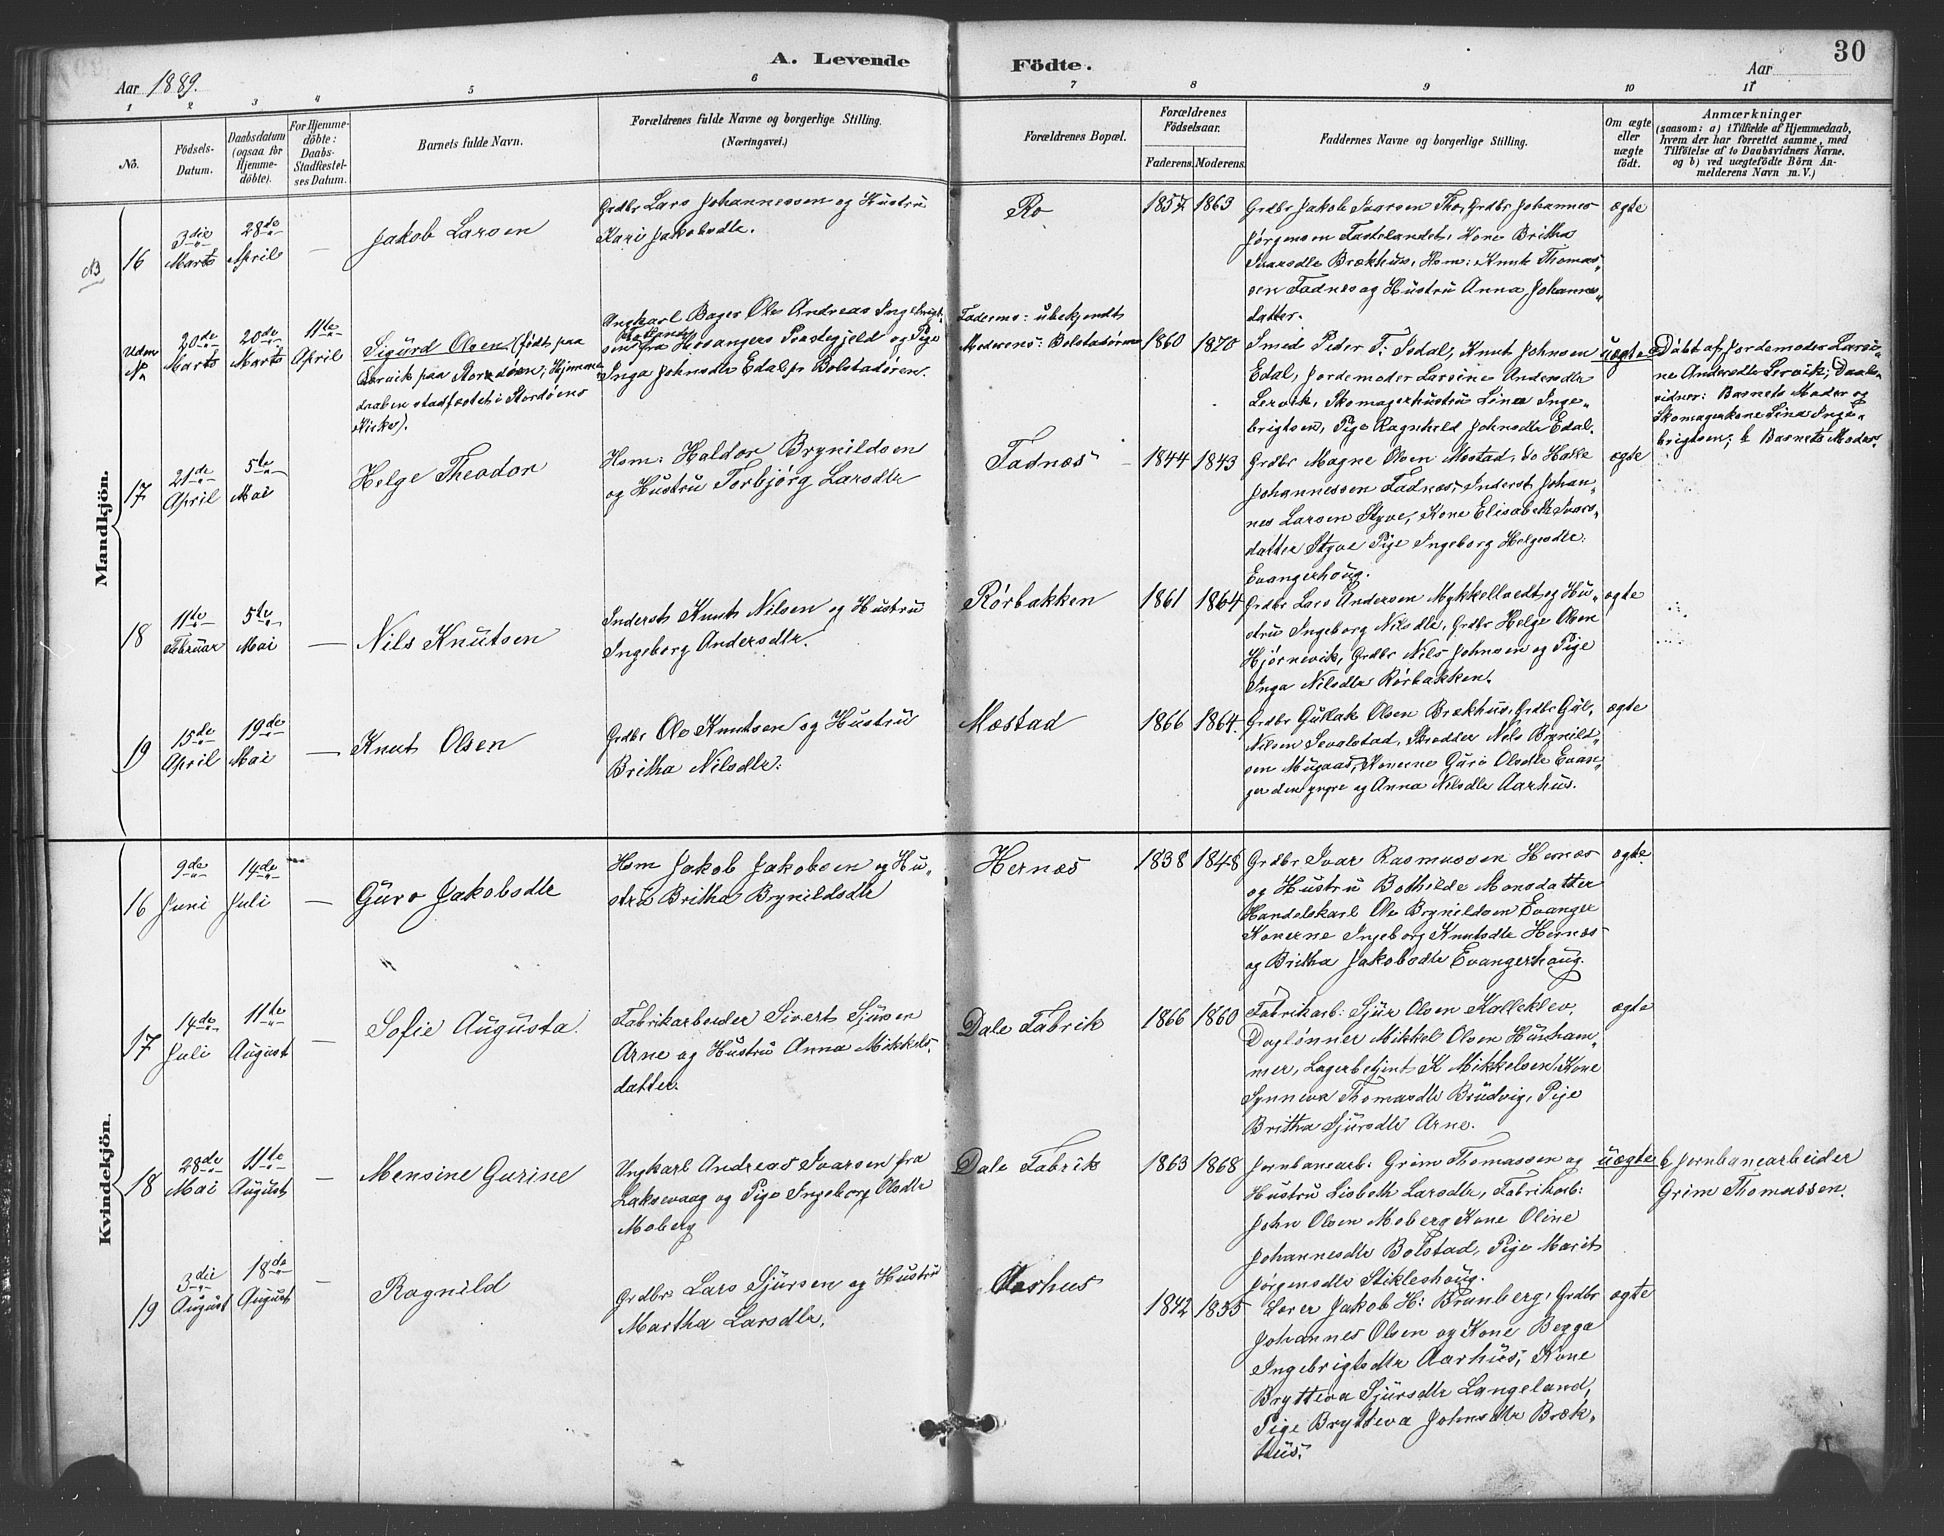 A. Levende Födte.
30
Aar 1889.
Aar
1 2 3 4 5 6 7 8 9 10 11
No.
Födsels-Datum.
Daabsdatum (ogsaa for Hjemme-döbte).
For Hjemme-döbte: Daabs-Stadfæstel-ses Datum.
Barnets fulde Navn.
Forældrenes fulde Navne og borgerlige Stilling. (Næringsvei.)
Forældrenes Bopæl.
Forældrenes Födselsaar.
Faderens. Moderens.
Faddernes Navne og borgerlige Stilling.
Om ægte eller uægte födt.
Anmærkninger
(saasom: a) i Tilfælde af Hjemmedaab, hvem der har forrettet samme, med Tilföielse af to Daabsvidners Navne, og b) ved uægtefödte Börn An-melderens Navn m. V.)
Mandkjön.
16
3die Marts
28de April
—
Jakob Larsen
Grdbr Lars Johannessen og Hustru
Kari Jakobsdtr.
Ro
1857 1863
Grdbr Jakob Ivarsen Tho, Grdbr Johannes
Jørgensen Fastelandet, Kone Britha
Ivarsdtr Brækhus, Hsm: Knut Thomas-
sen Fadnes og Hustru Anna Johannes-
datter.
ægte
Uden No
20de Marts
28de Marts
11te April
Sigurd Olsen (født paa
Lervik paa Stordøen; Hjemme-
daaben stadfæstet i Stordøens
Kirke).
Ungkarl Bager Ole Andreas Ingebrigt-
sen fra Hosangers Præstegjeld og Pige
Inga Johnsdtr Edal pr Bolstadøren.
Faderens: ubekjendt
Moderens: Bolstadøren
1860 1870
Smed Peder T: Isdal, Knut Johnsen
Edal, Jordemoder Larsine Andersdtr
Lervik, Skomagerhustru Lina Inge-
brigtsen, Pige Ragnhild Johnsdtr Edal.
uægte
Døbt af Jordemoder Larsi-
ne Andersdtr Lervik; Daabs-
vidner: Barnets Moder og
Skomagerkone Lina Inge-
brigtsen; b Barnets Moder.
17
21de April
5te Mai
Helge Theodor
Hsm: Haldor Brynildsen
og Hustru Torbjørg Larsdtr
Fadnæs
1844 1843
Grdbr Magne Olsen Mæstad, do Halle
Johannessen Fadnæs, Inderst Johan-
nes Larsen Styve, Kone Elisabeth Ivars-
datter Styve Pige Ingeborg Helgesdtr:
Evangerhoug.
ægte
18
11te Februar
5te Mai
—
Nils Knutsen
Inderst Knut Nilsen og Hustru
Ingeborg Andersdtr.
Rørbakken
1861 1864
Grdbr Lars Andersen Mykkeltvedt og Hu-
stru Ingeborg Nilsdtr, Grdbr Helge Olsen
Hjørnevik, Grdbr Nils Johnsen og Pige
Inga Nilsdtr Rørbakken.
ægte
19
15de April
19de Mai
—
Knut Olsen
Grdbr Ole Knutsen og Hustru
Britha Nilsdtr:
Mæstad
1866 1864.
Grdbr Gullak Olsen Brækhus, Grdbr Gul,
Nilsen Sevalstad, Skrædder Nils Brynild-
sen Mugaas, Konerne Guro Olsdtr Evan-
ger den yngre og Anna Nilsdtr Aarhus.
ægte
Kvindekjön.
16
9de Juni
14de Juli
—
Guro Jakobsdtr
Hsm Jakob Jakobsen og Hu-
stru Britha Brynildsdtr
Hernæs
1838 1848
Grdbr Ivar Rasmussen Hernæs
og Hustru Bothilde Monsdatter
Handelskarl Ole Brynildsen Evanger
Konerne Ingeborg Knutsdtr Hernæs
og Britha Jakobsdtr Evangerhoug.
ægte
17
14de Juli
11te August
—
Sofie Augusta.
Fabrikarbeider Sivert Sjursen
Arne og Hustru Anna Mikkels-
datter.
Dale Fabrik
1866 1860
Fabrikarb: Sjur Olsen Kalleklev,
Daglønner Mikkel Olsen Husham-
mer, Lagerbetjent K Mikkelsen, Kone
Synneva Thomasdtr Brudvig, Pige
Britha Sjursdtr Arne.
ægte
18
28de Mai
11te August
—
Mensine Gurine
Ungkarl Andreas Ivarsen fra
Laksevaag og Pige Ingeborg Olsdtr
Moberg
Dale Fabrik
1863 1868
Jernbanearb: Grim Thomassen og
Hustru Lisbeth Larsdtr, Fabrikarb:
John Olsen Moberg Kone Oline
Johannesdtr Bolstad, Pige Marit
Jørgensdtr Stikleshoug.
uægte
b Jernbanearbeider
Grim Thomassen.
19
3die August
18de August
—
Ragnild
Grdbr Lars Sjursen og Hustru
Martha Larsdtr,
Aarhus
1842 1855
Lærer Jakob H: Brunberg, Grdbr
Johannes Olsen og Kone Begga
Ingebrigtsdtr Aarhus, Kone
Brytteva Sjursdtr Langeland,
Pige Brytteva Johnsdtr Bræk-
hus.
ægte